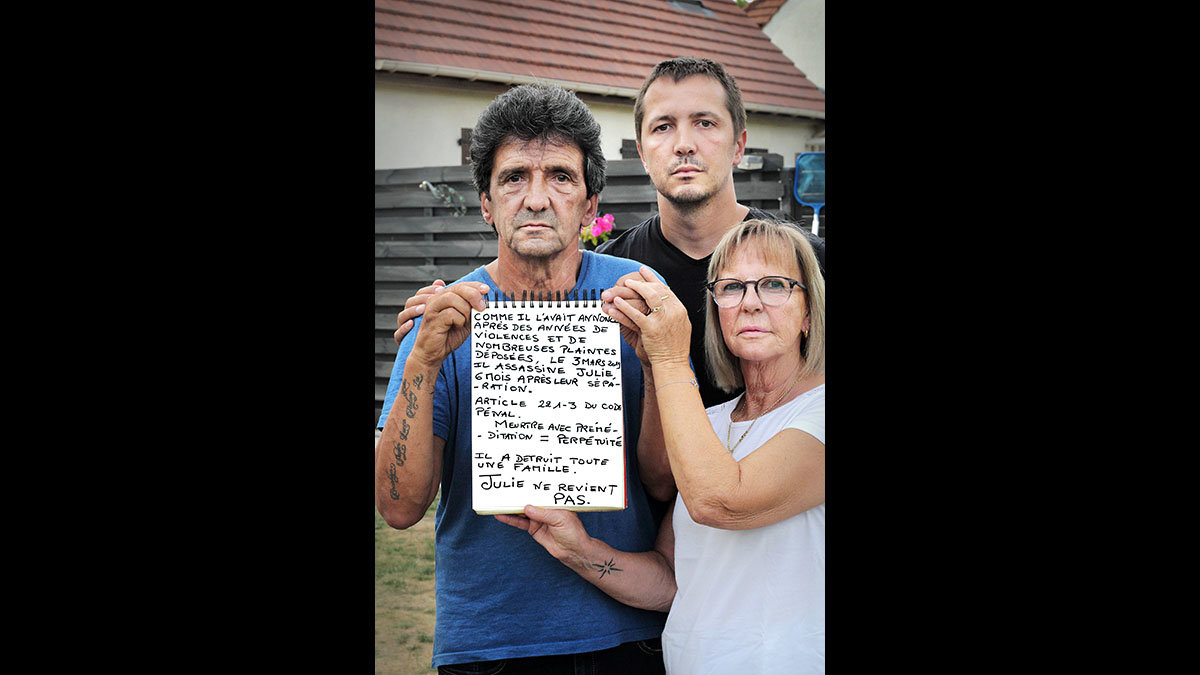 COMME IL L'AVAIT ANNONCÉ
APRÈS DES ANNÉES DE
VIOLENCES ET DE
NOMBREUSES PLAINTES
DÉPOSÉES, LE 3 MARS 2019
IL ASSASSINE JULIE
6 MOIS APRÈS LEUR SÉPA-
-RATION.
ARTICLE 221-3 DU CODE
PÉNAL.
MEURTRE AVEC PRÉMÉ-
-DITATION = PERPÉTUITÉ
IL A DETRUIT TOUTE
UNE FAMILLE.
JULIE NE REVIENT
PAS.